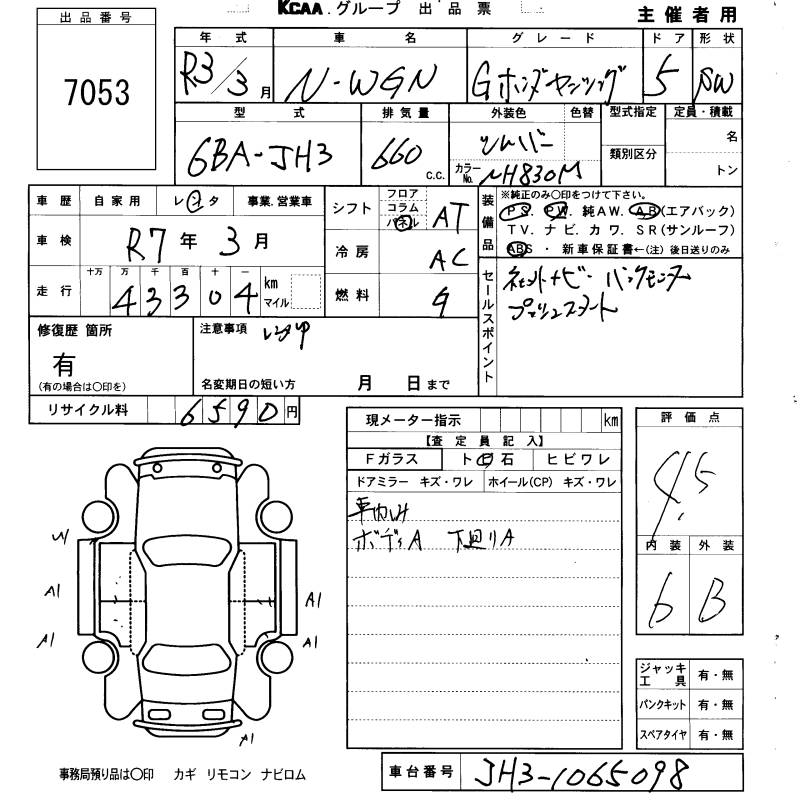 KCAA.グループ 出品票
主催者用
出品番号
7053
年式 車名 グレード ドア 形状
R3/3月 N-WGN Gホンダセンシング 5 SW
型式 排気量 外装色 色替 型式指定 定員・積載
6BA-JH3 660 c.c. シルバー 名
カラーNo. NH830M 類別区分 トン
車歴 自家用 レンタ 事業.営業車
シフト フロア コラム パネル AT
装備品 ※純正のみ〇印をつけて下さい。
PS. PW. 純AW. AB(エアバック)
TV. ナビ. カワ. SR(サンルーフ)
ABS・新車保証書←(注) 後日送りのみ
車検 R7年 3月
冷房 AC
走行 十万 万 千 百 十 一
43304 km マイル
燃料 G
セールスポイント
ネットナビ バックモニター
プッシュスタート
修復歴 箇所
有
(有の場合は〇印を)
注意事項 レンタup
名変期日の短い方 月 日まで
リサイクル料 6590円
現メーター指示 km
【査定員記入】
Fガラス ト石 ヒビワレ
ドアミラー キズ・ワレ ホイール(CP) キズ・ワレ
車内しみ
ボディA 下廻りA
評価点
4.5
内装 外装
6 B
A1
A1
A1
A1
A1
ジャッキ 工具 有・無
パンクキット 有・無
スペアタイヤ 有・無
事務局預り品は〇印 カギ リモコン ナビロム
車台番号 JH3-1065098